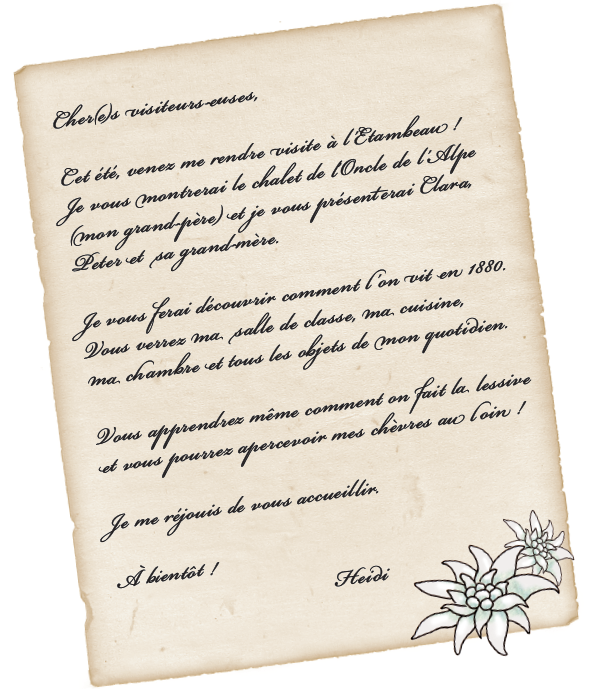 Cher(e)s visiteurs-euses,
Cet été, venez me rendre visite à l'Etambeau !
Je vous montrerai le chalet de l'Oncle de l'Alpe
(mon grand-père) et je vous présenterai Clara,
Peter et sa grand-mère.
Je vous ferai découvrir comment l'on vit en 1880.
Vous verrez ma salle de classe, ma cuisine,
ma chambre et tous les objets de mon quotidien.
Vous apprendrez même comment on fait la lessive
et vous pourrez apercevoir mes chèvres au loin !
Je me réjouis de vous accueillir.
À bientôt ! Heidi